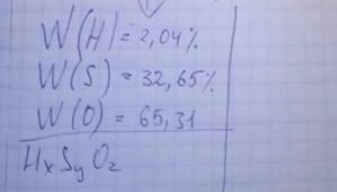 W(H)=2,04%
W(S)=32,65%
W(O)=65,31
HxSyOz